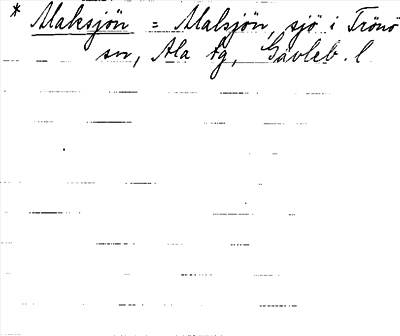 * Malsjön = Malsjön, sjö i Trönö
sn, Ala tg, Gävleb. l